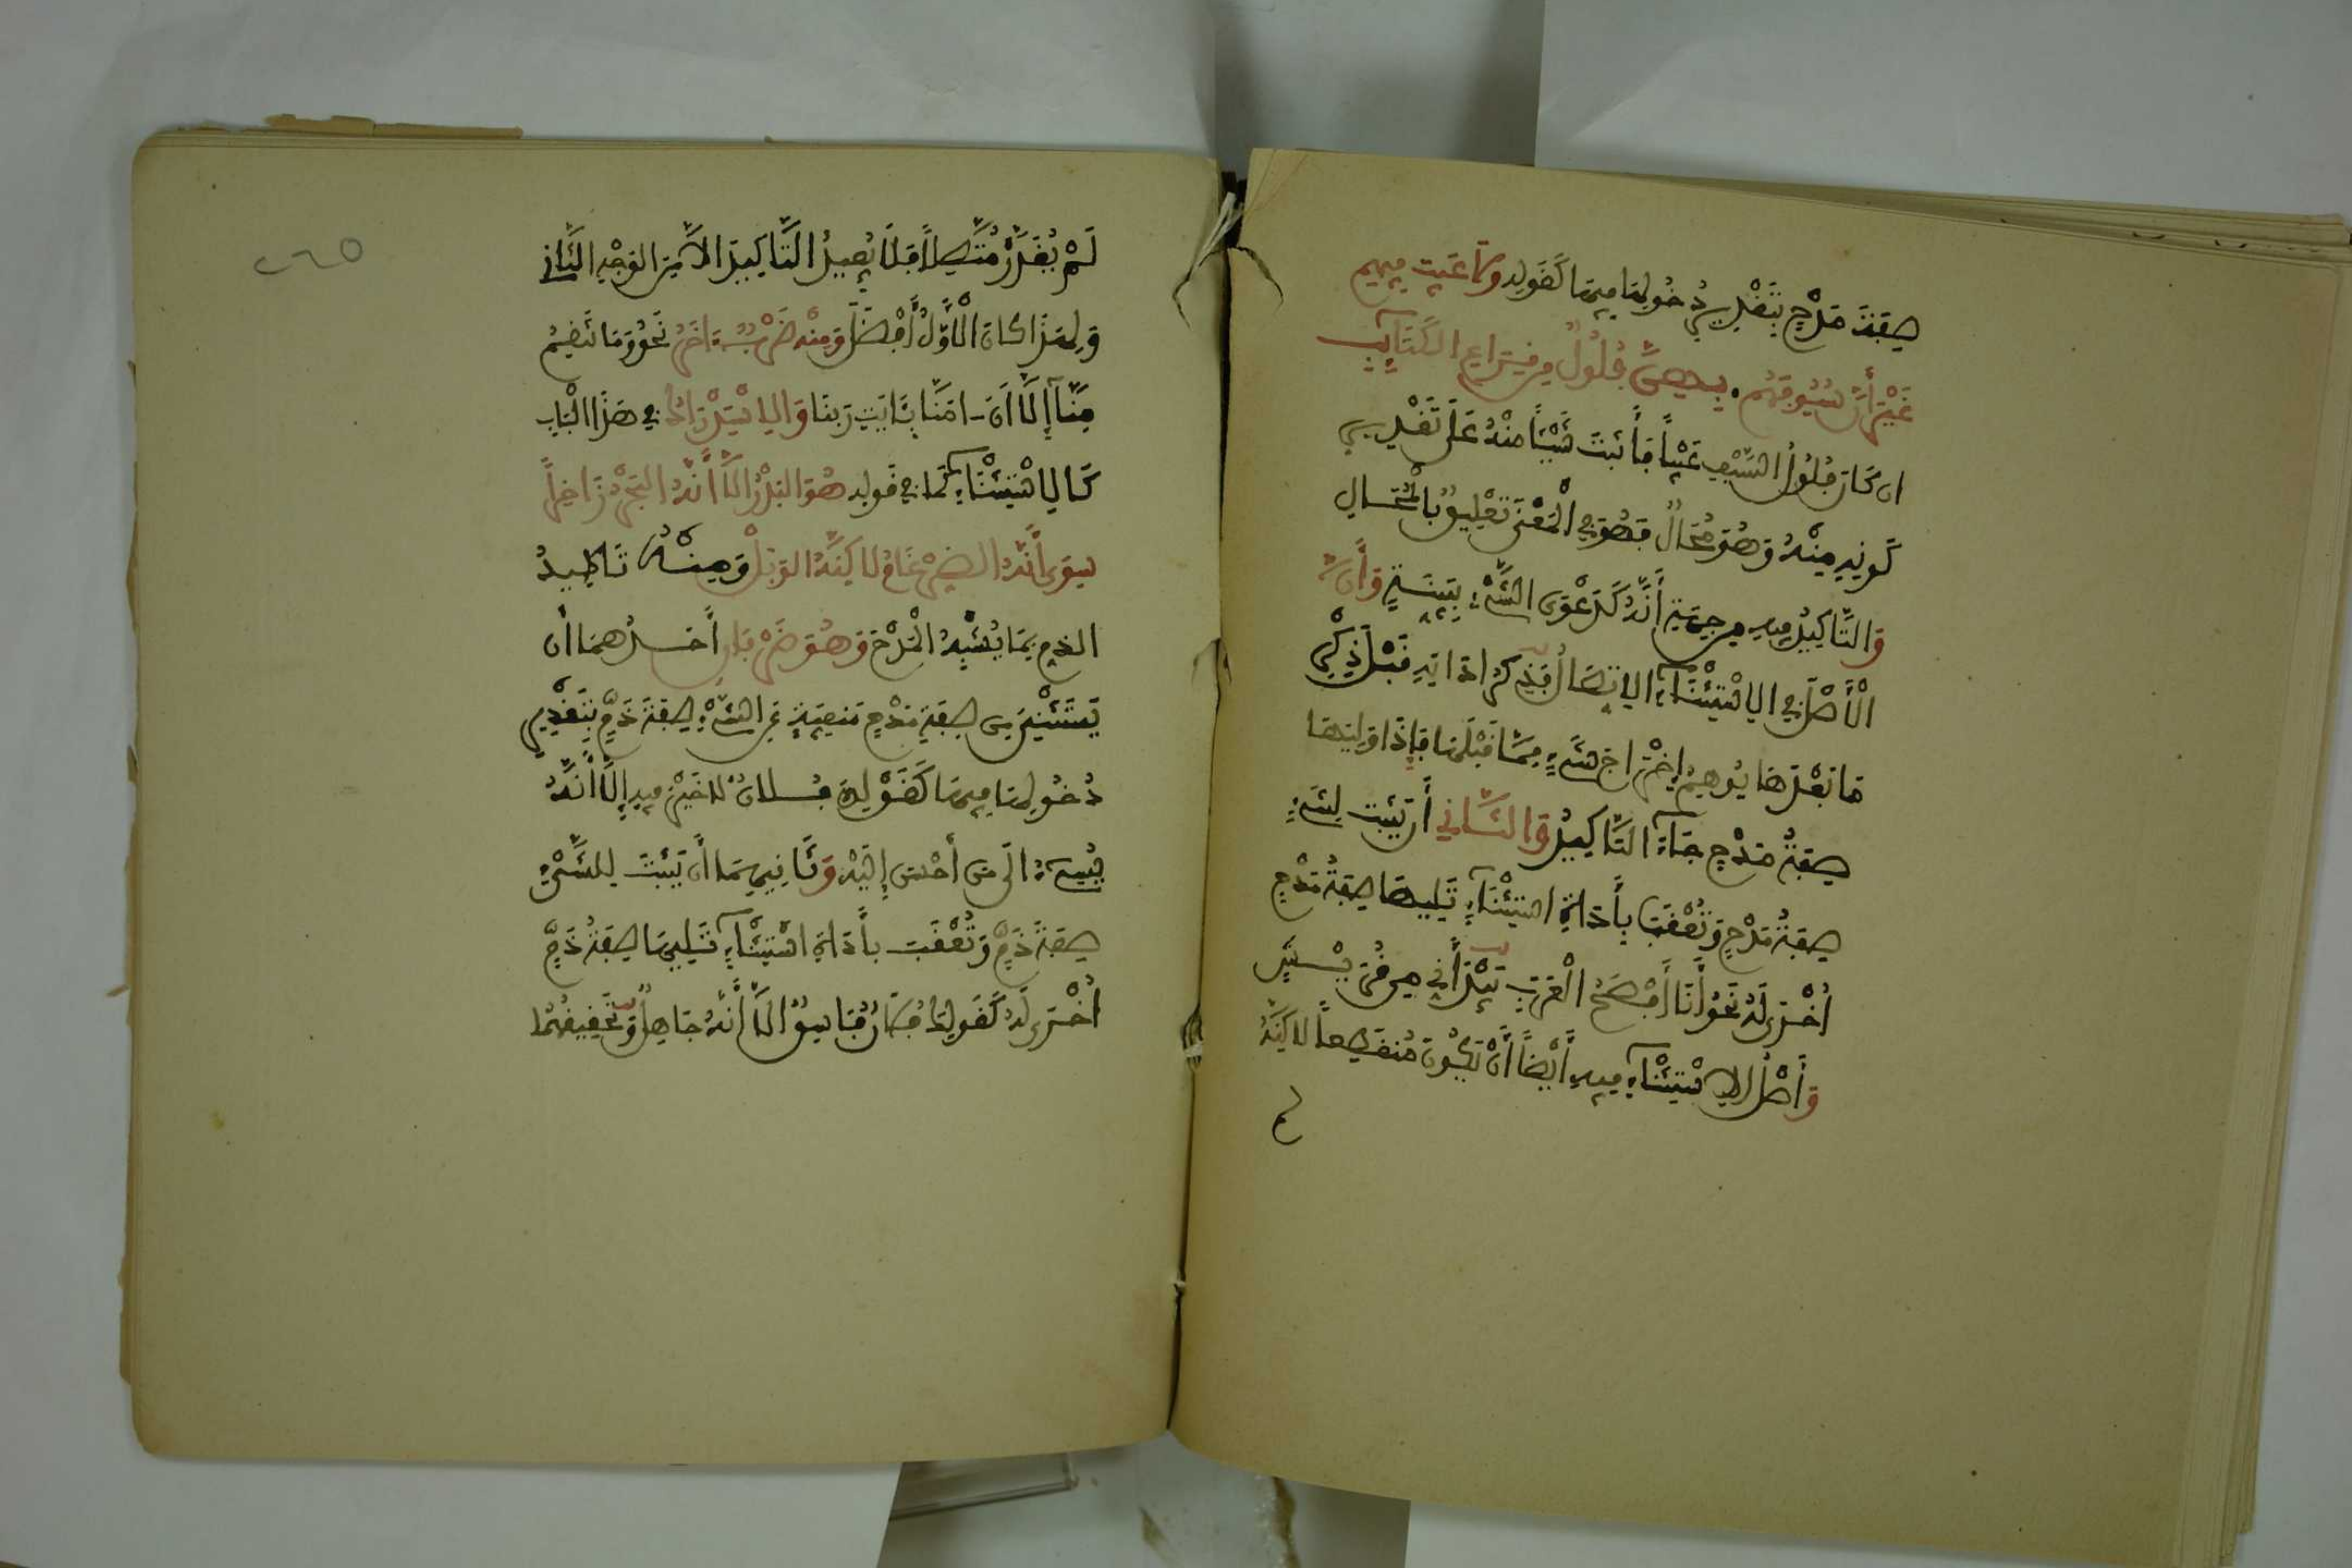 صِفَةَ مَدْحٍ بِتَقْدِيرِ دُخُولِهَا فِيهَا كَقَوْلِهِ وَلَا عَيْبَ فِيهِمْ
غَيْرَ أَنَّ سُيُوفَهُمْ بِهِنَّ فُلُولٌ مِن قِرَاعِ الْكَتَائِبِ
ان كَانَ فُلُولُ السَّيْفِ عَيْبًا فَأَثْبَتَ شَيْئًا مِنْهُ عَلَى تَقْدِيرِ
كَوْنِهِ مِنْهُ وَهُوَ مُحَالٌ فَهُوَ فِي الْمَعْنَى تَعْلِيقٌ بِالْمُحَالِ
وَالتَّاكِيدُ فِيهِ مِن جِهَةِ أَنَّهُ كَدَعْوَى الشَّيْءِ بِبَيِّنَةٍ وَأَنَّ
الْأَصْلَ فِي الِاسْتِثْنَاءِ الِاتِّصَالُ فَذِكْرُ اداتِهِ قَبْلَ ذِكْرِ
مَا بَعْدَهَا يُوهِمُ إِخْرَاجَ شَيْءٍ مِمَّا قَبْلَهَا فَإِذَا وَلِيَتْهَا
صِفَةُ مَدْحٍ جَاءَ التَّاكِيدُ وَالثَّانِي أَن يُثْبِتَ لِشَيْءٍ
صِفَةُ مَدْحٍ وَتُعْقَبَ بِأَدَاةِ اسْتِثْنَاءٍ تَلِيهَا صِفَةُ مَدْحٍ
أُخْرَى لَهُ نَحْوُ أَنَا أَفْصَحُ الْعَرَبِ بَيْدَ أَنِّي مِن قُرَيْشٍ
وَأَصْلُ الِاسْتِثْنَاءِ فِيهِ أَيْضًا أَنْ يَكُونَ مُنقَطِعًا لَاكِنَّهُ
لم
٢٦٥
لَمْ يُقَدَّرْ مُتَّصِلًا فَلَا يُفِيدُ التَّاكِيدَ الَّا مِنَ الْوَجْهِ الثَّانِي
وَلِهَذَا كَانَ الْأَوَّلُ أَفْضَلَ وَمِنْهُ ضَرْبٌ اخَرُ نَحْوُ وَمَا تَنقِمُ
مِنَّا إِلَّا أَنَ امَنَّا بِئَايَتِ رَبِّنَا وَالِاسْتِدْرَاكُ فِي هَذَا الْبَابِ
كَالِاسْتِثْنَاءِ كَمَا فِي قَوْلِهِ هُوَ الْبَدْرُ الَّا أَنَّهُ الْبَحْرُ زَاخِرًا
سِوَى أَنَّهُ الضِّرْغَامُ لَاكِنَّهُ الْوَبْلُ وَمِنْهُ تَاكِيدُ
الذمِ بِمَا يُشْبِهُ الْمَدْحَ وَهُوَ ضَرْبَانِ أَحَدُهُمَا أَن
يَسْتَثْنِيَ مِن صِفَةِ مَدْحٍ مَنفِيَّةٍ عَنِ الشَّيْءِ صِفَةَ ذَمٍّ بِتَقْدِيرِ
دُخُولِهَا فِيهَا كَقَوْلِكَ فُلَانٌ لَا خَيْرَ فِيهِ إِلَّا أَنَّهُ
يُسِيءُ الَى مَن أَحْسَنَ إِلَيْهِ وَثَانِيهِمَا أَن يُثْبِتَ لِلشَّيْءِ
صِفَةَ ذَمٍّ وَتُعْقَبَ بِأَدَاةِ اسْتِثْنَاءٍ تَلِيهَا صِفَةُ ذَمٍّ
أُخْرَى لَهُ كَقَوْلِكَ فُلَانٌ فَاسِقٌ الَّا أَنَّهُ جَاهِلٌ وَتَحْقِيقُهُمَا